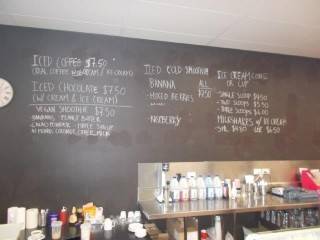 ICED COFFEE $7.50
(REAL COFFEE / ICE-CREAM)
ICED CHOCOLATE $7.50
(W CREAM & ICE CREAM)
VEGAN SMOOTHIE $7.50
BANANAS PEANUT BUTTER
CACAO POWDER - MAPLE SYRUP
COCONUT MILK
ICED COLD SMOOTHIE
BANANA ALL
- MIXED BERRIES 7.50
- MANGO
- RASPBERRY
ICE CREAM CONE
OR CUP
- SINGLE SCOOP $4.50
- TWO SCOOPS $5.50
- THREE SCOOPS $6.00
MILKSHAKES W/ ICE CREAM
SML $4.50 LGE $6.50